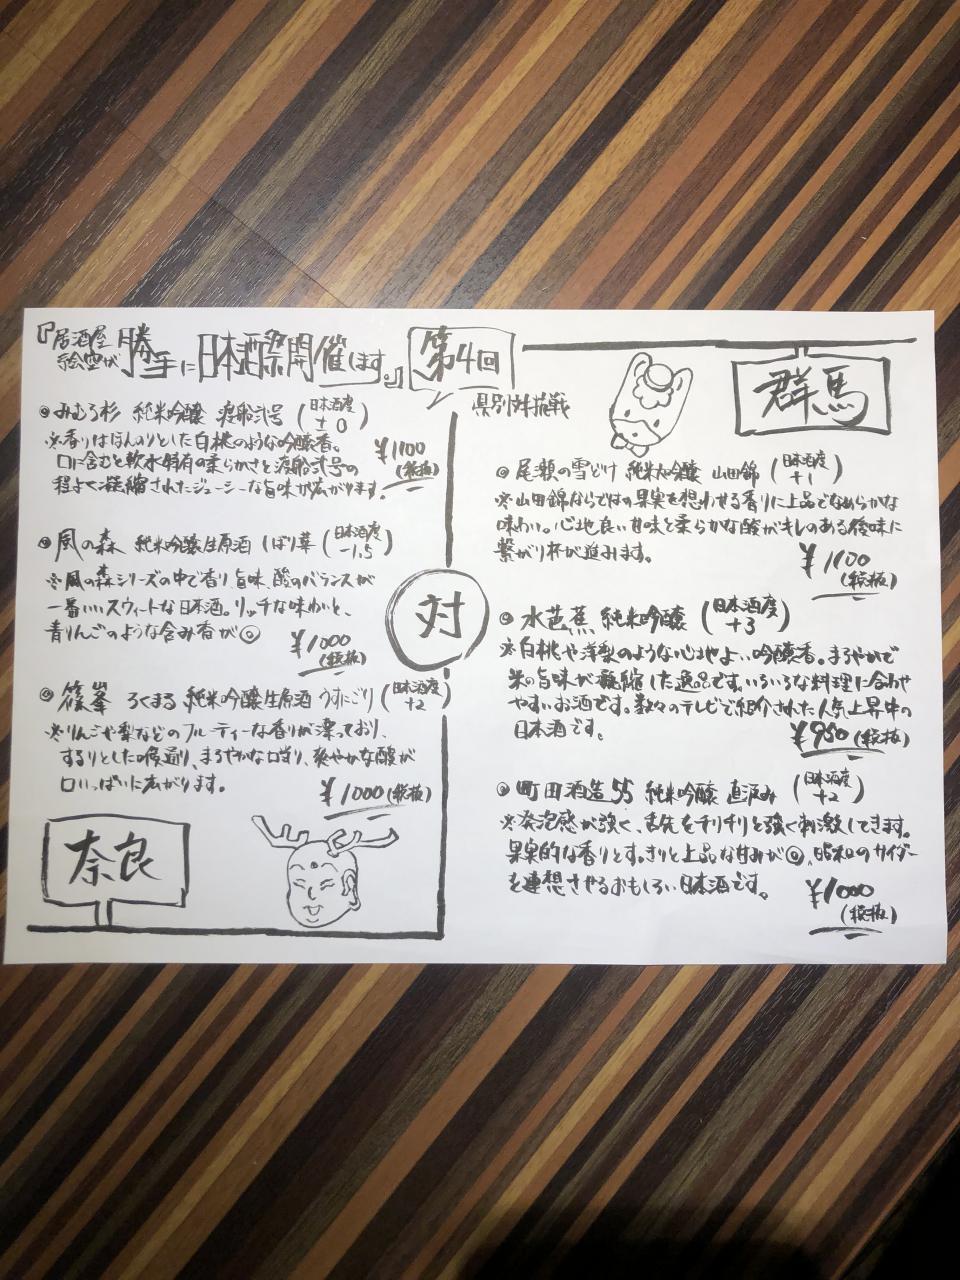 『居酒屋
絵空が勝手に日本酒祭開催します。』第4回
県別対抗戦
みむろ杉 純米吟醸 渡船弐号 (日本酒度 ±0)
※香りはほんのりとした白桃のような吟醸香。
口に含むと軟水特有の柔らかさと渡船弐号の
程よく凝縮されたジューシーな旨味が広がります。
¥1100
(税抜)
風の森 純米吟醸生原酒 しぼり華 (日本酒度 -1.5)
※風の森シリーズの中で香り旨味、酸のバランスが
一番いいスウィートな日本酒。リッチな味わいと、
青りんごのような含み香が◎
¥1000
(税抜)
篠峯 ろくまる 純米吟醸生原酒 うすにごり (日本酒度 +2)
※りんごや梨などのフルーティーな香りが漂っており、
するりとした喉通り、まろやかな口当り、爽やかな酸が
口いっぱいに広がります。
¥1000(税抜)
奈良
対
群馬
尾瀬の雪どけ 純米大吟醸 山田錦 (日本酒度 +1)
※山田錦ならではの果実を想わせる香りに上品でなめらかな
味わい。心地良い甘味と柔らかな酸がキレのある後味に
繋がり杯が進みます。
¥1100
(税抜)
水芭蕉 純米吟醸 (日本酒度 +3)
※白桃や洋梨のような心地よい吟醸香。まろやかで
米の旨味が凝縮した逸品です。いろいろな料理に合わせ
やすいお酒です。数々のテレビで紹介された人気上昇中の
日本酒です。
¥950(税抜)
町田酒造55 純米吟醸 直汲み (日本酒度 +2)
※発泡感が強く、舌先をチリチリと強く刺激してきます。
果実的な香りとすっきりと上品な甘みが◎、昭和のサイダー
を連想させるおもしろい日本酒です。
¥1000
(税抜)